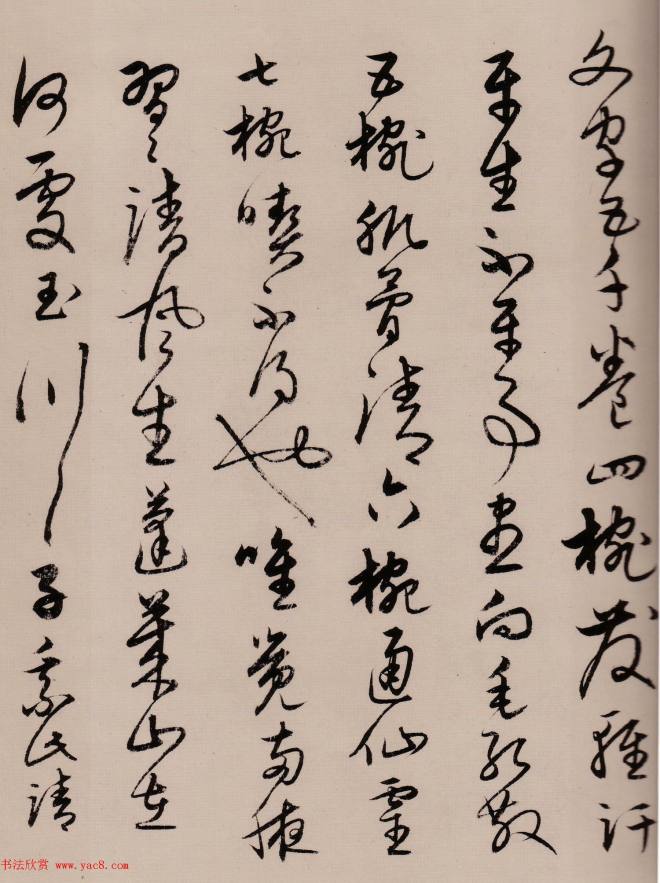 文字五千卷四椀發輕汗
平生不平事盡向毛孔散
五椀肌骨清六椀通仙靈
七椀喫不得也唯覺兩腋
習〻清風生蓬萊山在
何處玉川子乘此清
书法欣赏 www.yac8.com